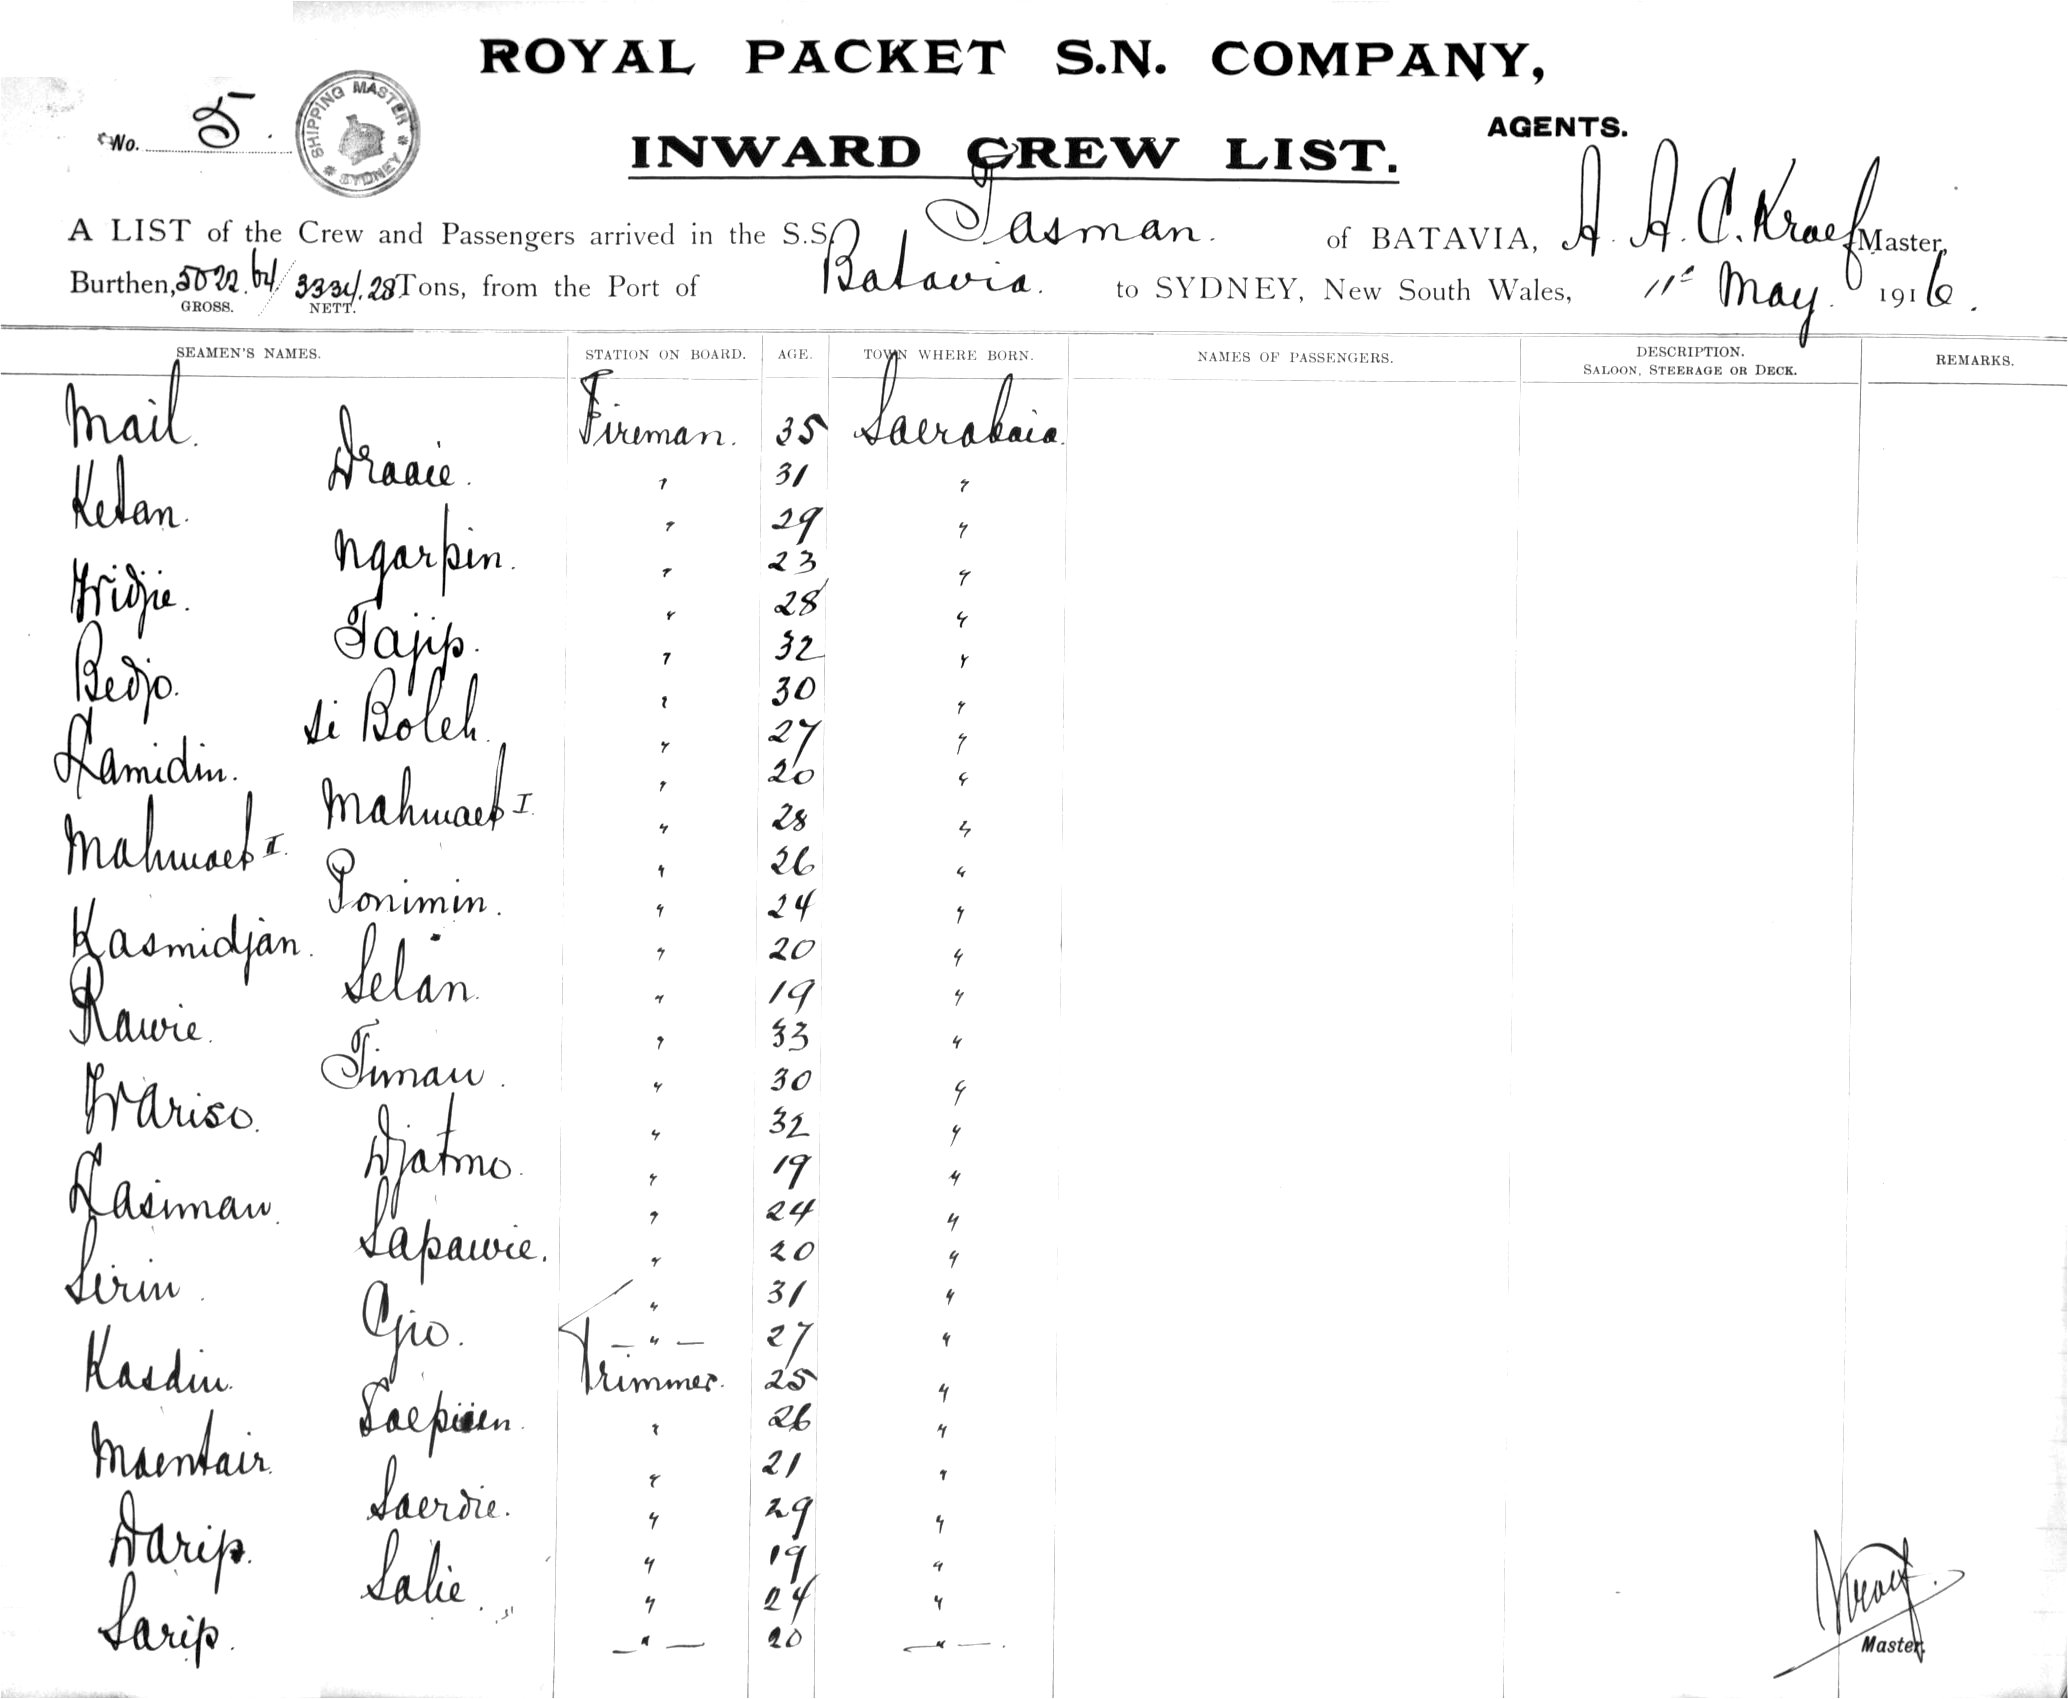 ROYAL PACKET S.N. COMPANY,
AGENTS.
No. 5.
SHIPPING MASTER SYDNEY
INWARD CREW LIST.
A LIST of the Crew and Passengers arrived in the S.S. Tasman. of BATAVIA, A. A. C. Kraef Master,
Burthen, 5022.64/3334.28 Tons, from the Port of Batavia. to SYDNEY, New South Wales, 11th May. 1916.
GROSS. NETT.
SEAMEN'S NAMES. STATION ON BOARD. AGE. TOWN WHERE BORN. NAMES OF PASSENGERS. DESCRIPTION. REMARKS.
SALOON, STEERAGE OR DECK.
Mail. Fireman. 35 Soerabaia.
Draaie. " 31 "
Ketan. " 29 "
Ngarpin. " 23 "
Wridjie. " 28 "
Tajip. " 32 "
Bedjo. " 30 "
Si Boleh. " 27 "
Kamidin. " 20 "
Mahmoed I. " 28 "
Mahmoed I. " 26 "
Ponimin. " 24 "
Kasmidjan. " 20 "
Selan. " 19 "
Rawie. " 33 "
Timan. " 30 "
Wariso. " 32 "
Djatmo. " 19 "
Kasiman. " 24 "
Sapawie. " 20 "
Sirin. " 31 "
Gio. — " — 27 "
Kasdin. Trimmer. 25 "
" 26 "
Moentair. " 21 "
Soerdie. " 29 "
Darip. " 19 "
Salie. " 24 "
Sarip. — " — 20 — " —.
Kraef.
Master.